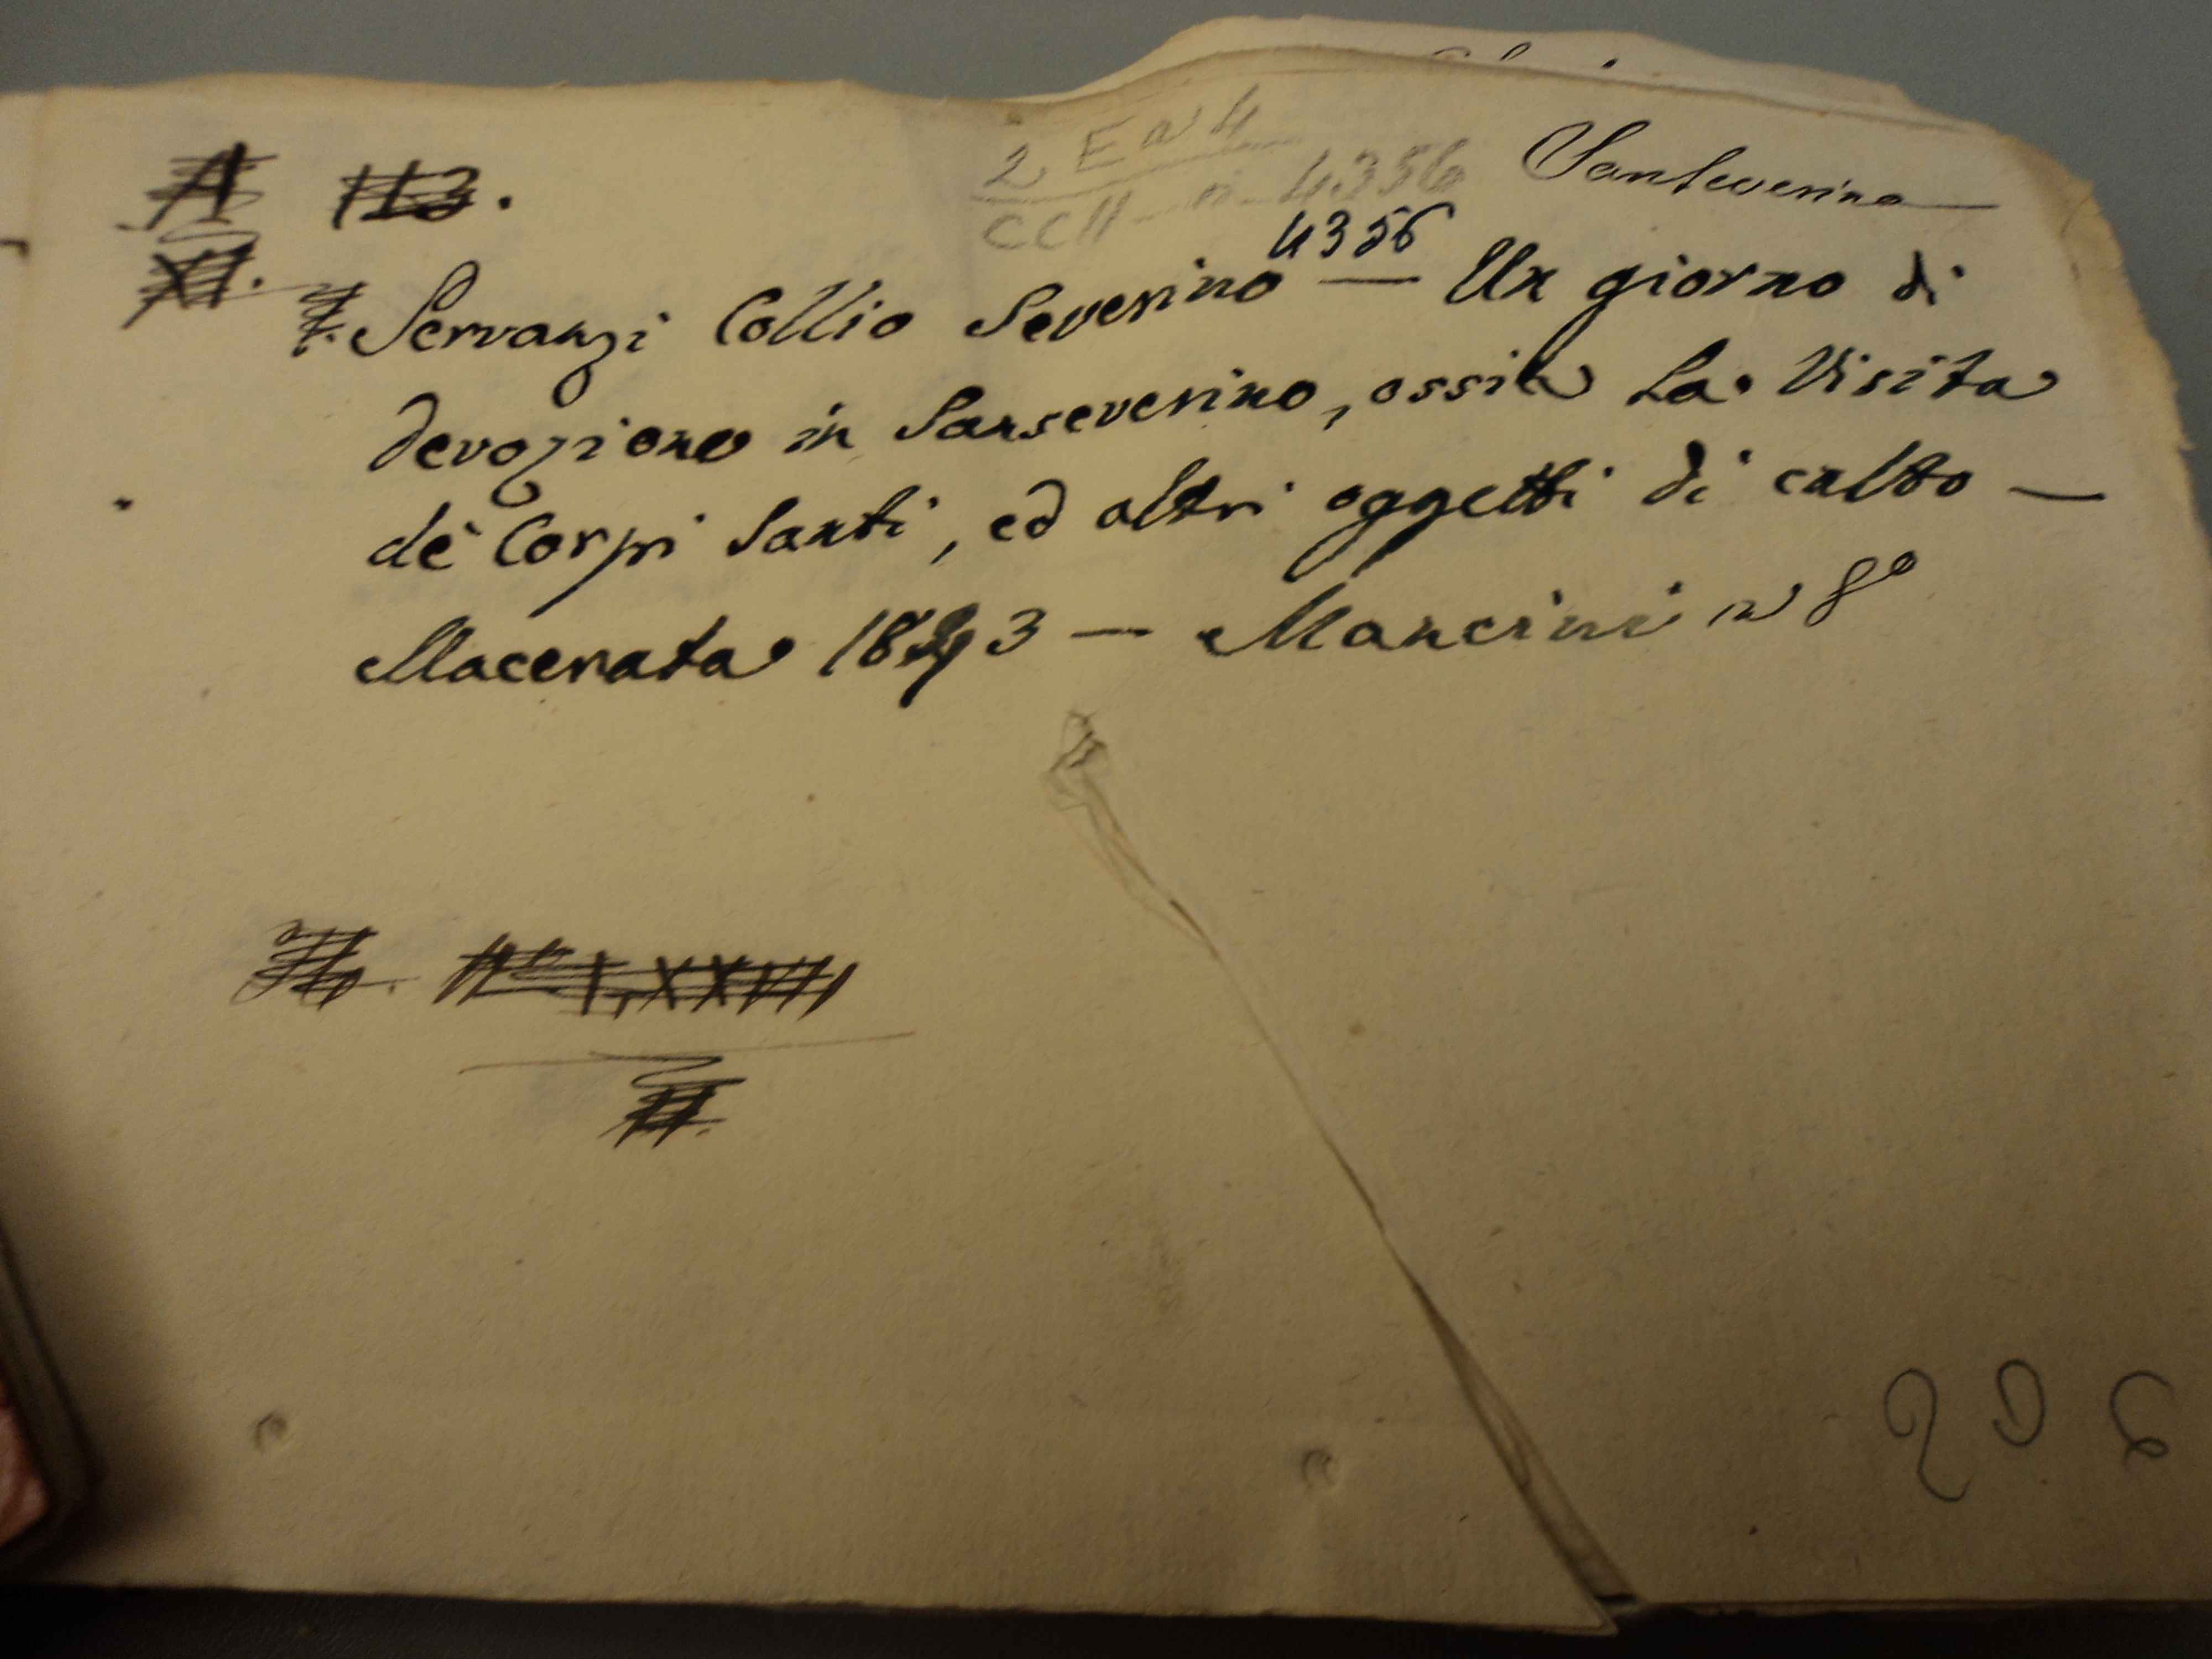 A 113. 2 E n 4 Sanseverino
CCII n. 4356
XI. 4356
Servanzi Collio Severino — Un giorno di
devozione in Sanseverino, ossia La Visita
de' Corpi Santi, ed altri oggetti di culto —
Macerata 1843 — Mancini in 8º
206